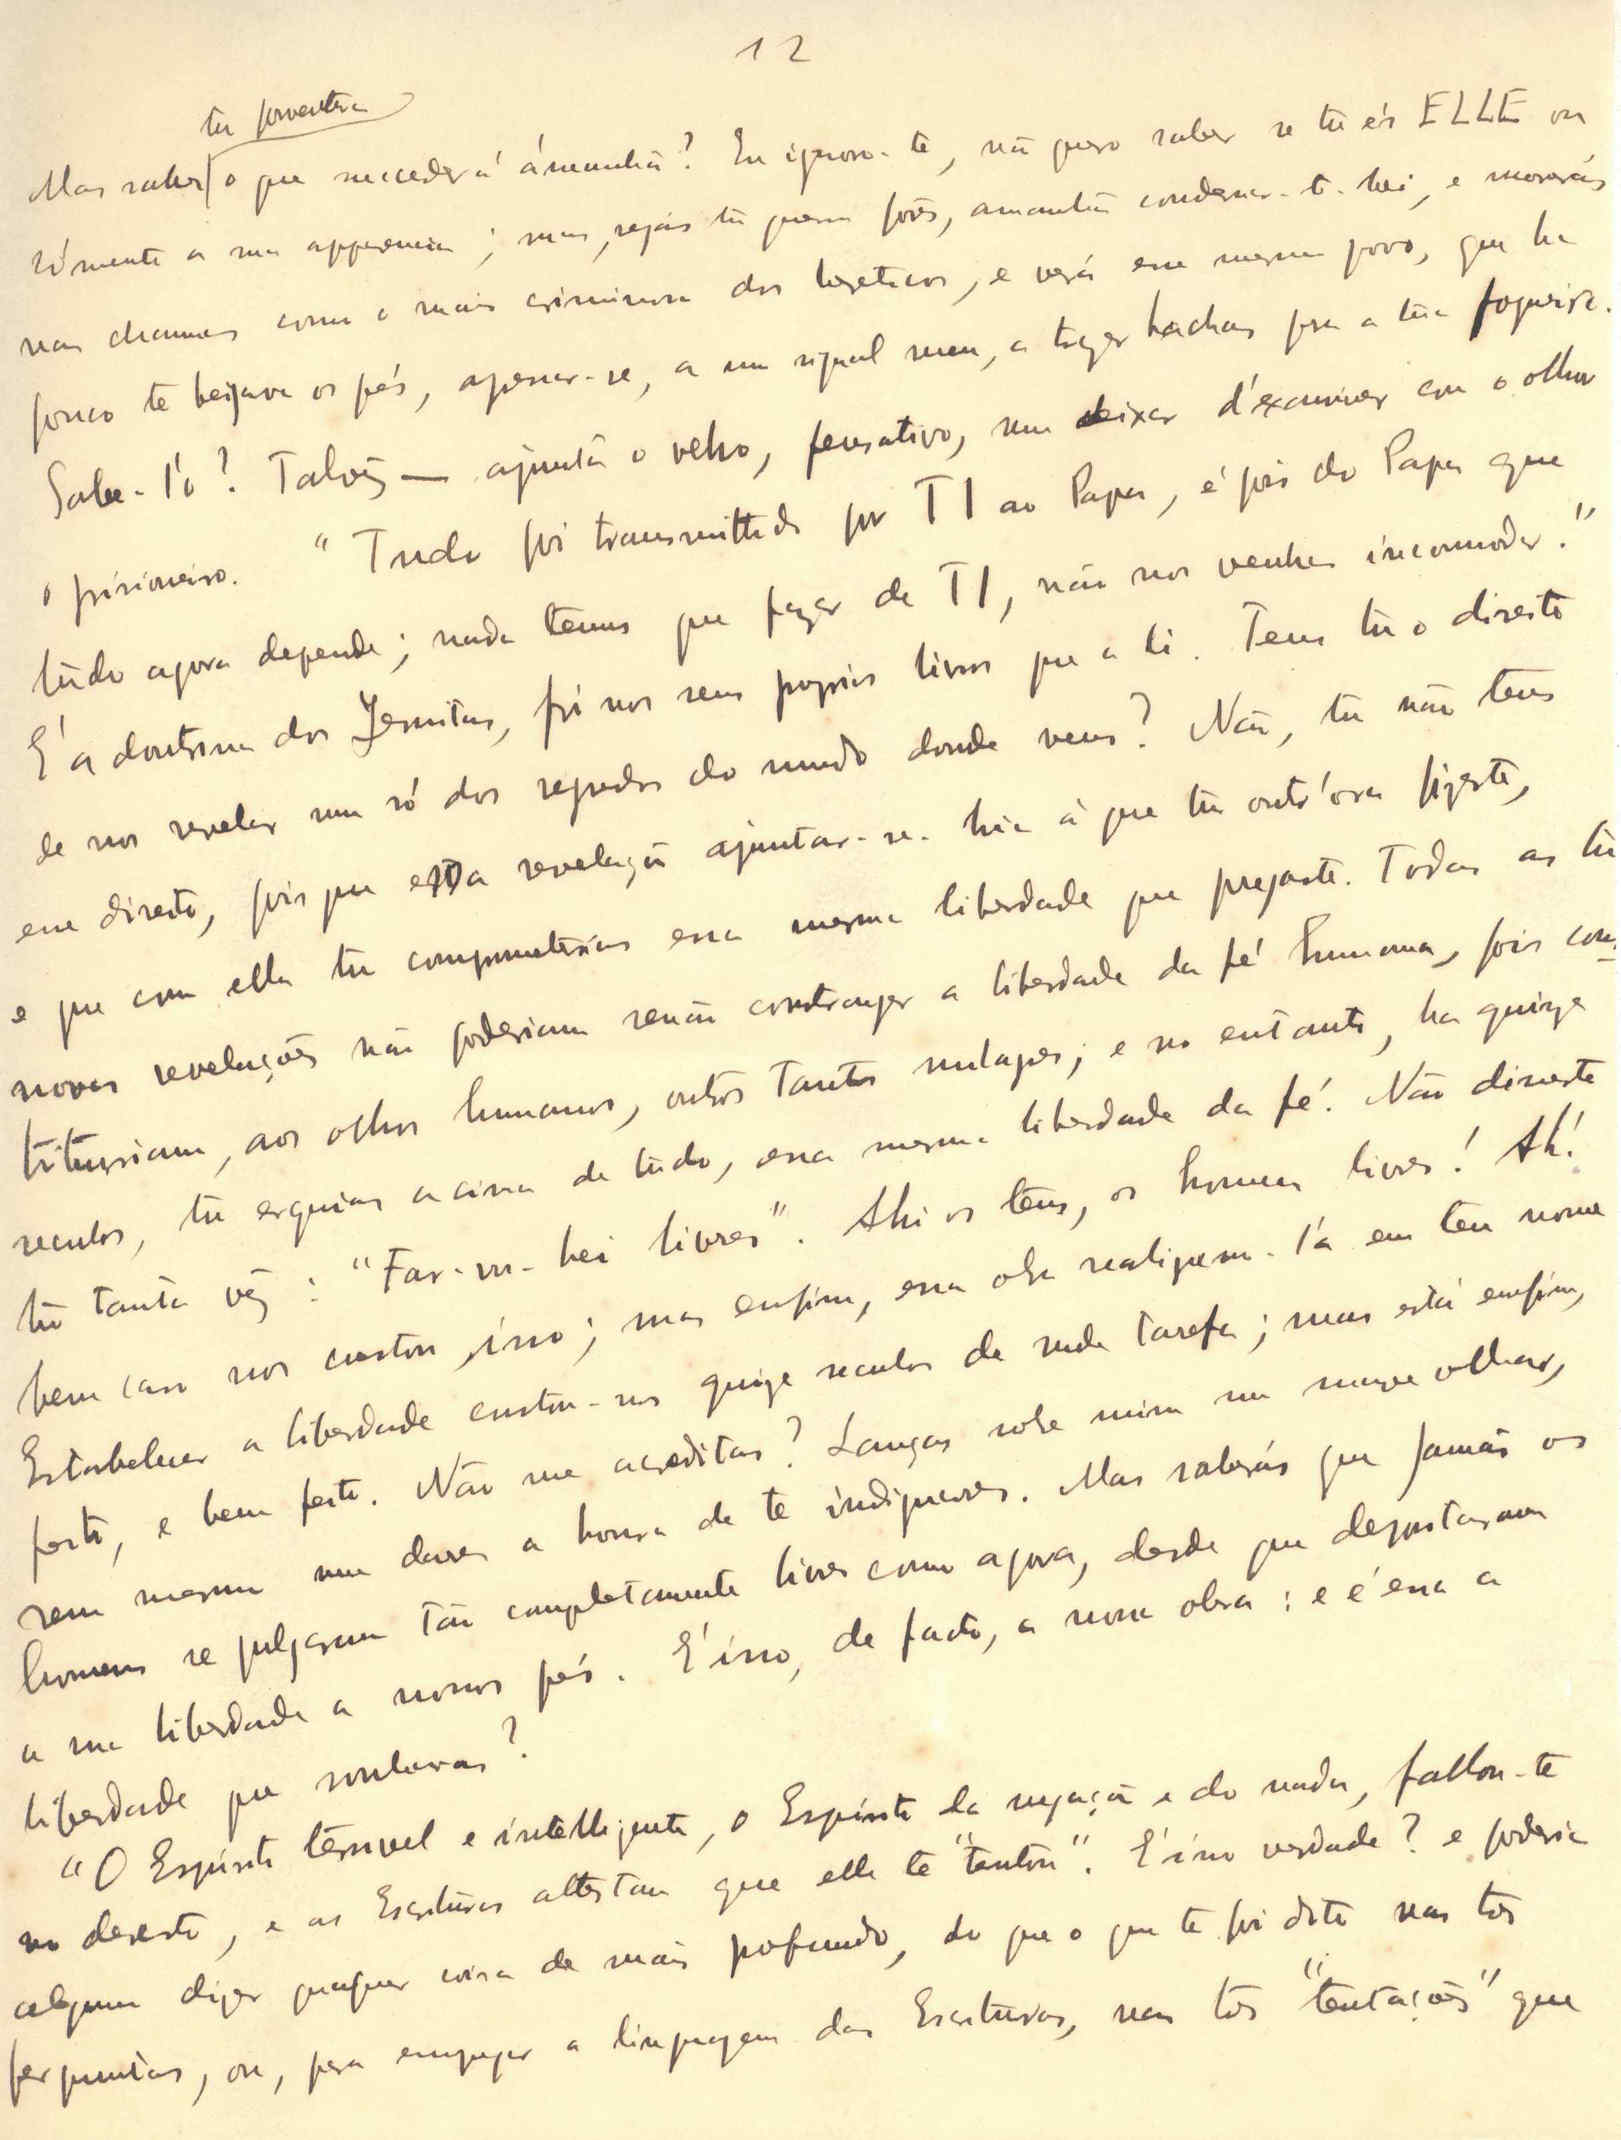 12
tu porventura
Mas sabes o que succederá ámanhã? Eu ignoro-te, não quero saber se tu és ELLE ou
sómente a sua apparencia; mas, sejas tu quem fôres, amanhã condemnar-te-hei, e morrerás
nas chammas como o mais criminoso dos hereticos, e verás esse mesmo povo, que ha
pouco te beijava os pés, apressar-se, a um signal meu, a trazer hachas pra a tua fogueira.
Sabe-l'o? Talvêz — ajunta o velho, pensativo, sem deixar d'examinar com o olhar
o prisioneiro. "Tudo foi transmittido por TI ao Papa, é pois do Papa que
tudo agora depende; nada temos que fazer de TI, não nos venhas incommodar."
É a doutrina dos Jesuitas, foi nos seus proprios livros que a li. Tens tu o direito
de nos revelar um só dos segredos do mundo donde vens? Não, tu não tens
esse direito, pois que essa revelação ajuntar-se-hia á que tu outr'ora fizeste,
e que com ella tu comprometterias essa mesma liberdade que pregaste. Todas as tuas
novas revelações não poderiam senão constranger a liberdade da fé humana, pois cons-
tituiriam, aos olhos humanos, outros tantos milagres; e no entanto, ha quinze
seculos, tu erguias acima de tudo, essa mesma liberdade da fé. Não disseste
tu tanta vêz: "Far-vos-hei livres". Ahi os tens, os homens livres! Ah!
bem caro nos custou isso; mas emfim, essa obra realizem-l'a em teu nome
Estabelecer a liberdade custou-nos quinze seculos de rude tarefa; mas está emfim,
feito, e bem feito. Não me acreditas? Lanças sobre mim um suave olhar,
sem mesmo me dares a honra de te indignares. Mas saberás que jamais os
homens se julgaram tão completamente livres como agora, desde que depositaram
a sua liberdade a nossos pés. É isso, de facto, a nossa obra: e é essa a
liberdade que sonhavas?
"O Espirito terrivel e intelligente, o Espirito da negação e do nada, fallou-te
no deserto, e as Escrituras attestam que elle te "tentou". É isso verdade? e poderia
alguem dizer qualquer coisa de mais profundo, do que o que te foi dito nas tres
perguntas, ou, para empregar a linguagem das Escrituras, nas tres "tentações" que